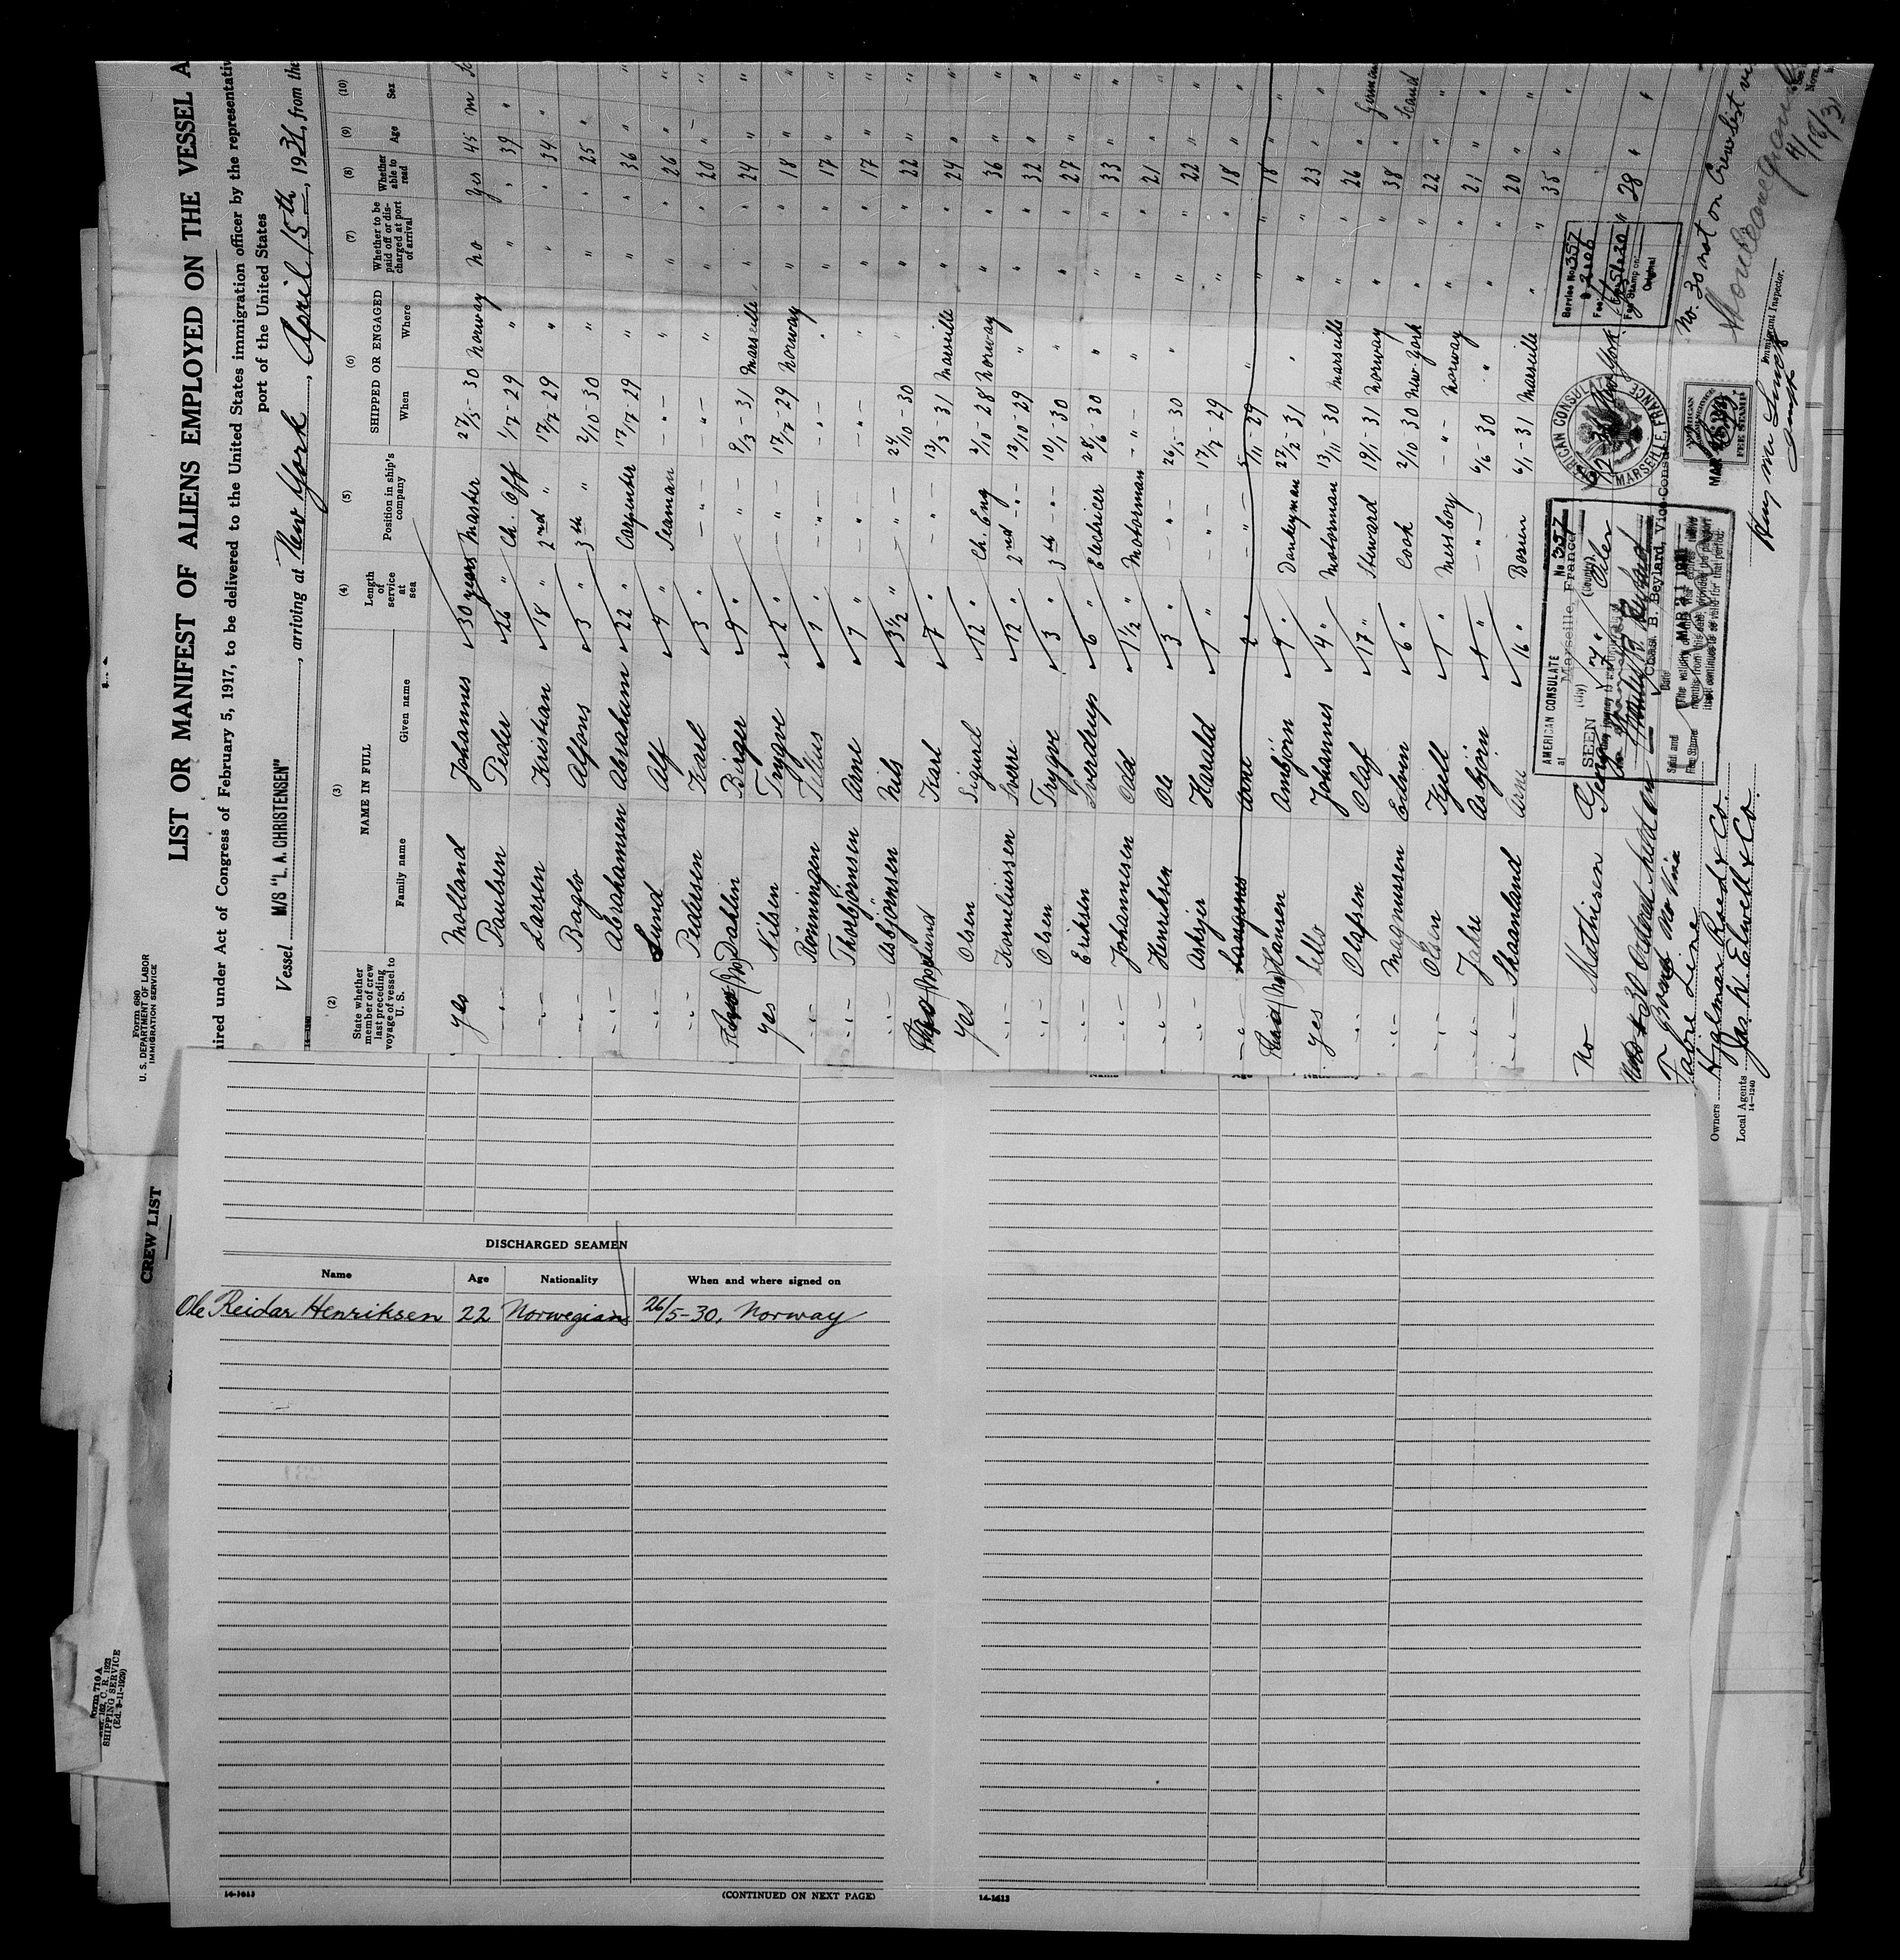 Form 680
U. S. DEPARTMENT OF LABOR
IMMIGRATION SERVICE
LIST OR MANIFEST OF ALIENS EMPLOYED ON THE VESSEL A
ired under Act of Congress of February 5, 1917, to be delivered to the United States immigration officer by the representativ
port of the United States
Vessel M/S "L. A. CHRISTENSEN", arriving at New York, April 15th, 1931, from the
(2) (3) (4) (5) (6) (7) (8) (9) (10)
State whether member of crew last preceding voyage of vessel to U. S.
NAME IN FULL
Family name Given name
Length of service at sea
Position in ship's company
SHIPPED OR ENGAGED
When Where
Whether to be paid off or discharged at port of arrival
Whether able to read
Age
Sex
yes Molland Johannes 30 years Master 27/5-30 Norway no yes 45 m
" Paulsen Peder 26 " Ch. Off 1/7-29 " " " 39 "
" Larsen Kristian 18 " 2nd " 17/7-29 " " " 34 "
" Baglo Alfons 3 " 3th " 2/10-30 " " " 25 "
" Abrahamsen Abraham 22 " Carpenter 17/7-29 " " " 36 "
" Lund Alf 4 " Seaman " " " " 26 "
" Pedersen Karl 3 " " " " " " 20 "
(No) Dahlin Birger 9 " " 9/3-31 Marseille " " 24 "
yes Nilsen Trygve 2 " " 17/7-29 Norway " " 18 "
" Rönningen Tellus 1 " " " " " " 17 "
" Thorbjörnsen Arne 1 " " " " " " 17 "
" Asbjörnsen Nils 3½ " " 24/10-30 " " " 22 "
(No) Lund Karl 7 " " 13/3-31 Marseille " " 24 "
yes Olsen Sigurd 12 " Ch. Eng 3/10-28 Norway " " 36 "
" Korneliussen Sverre 12 " 2nd " 13/10-29 " " " 32 "
" Olsen Trygve 3 " 3th " 10/1-30 " " " 27 "
" Eriksen Sverdrup 6 " Electricer 28/6-30 " " " 33 "
" Johannesen Odd 1½ " Motorman " " " " 21 "
" Henriksen Ole 3 " " 26/5-30 " " " 22 "
" Askjer Harald 1 " " 17/7-29 " " " 18 "
" Arne 2 " " 5/11-29 " " " 18 "
(No) Hansen Arnbjörn 9 " Dankeyman 27/2-31 " " " 23 "
yes Johannes 4 " Motorman 13/11-30 Marseille " " 26 "
" Olafsen Olaf 17 " Steward 19/1-31 Norway " " 38 "
" Magnussen Edvin 6 " Cook 2/10 30 New-York " " 22 "
" Olsen Kjell 1 " Messboy " Norway " " 21 "
" Jahre Asbjörn 4 " " 6/6-30 " " " 20 "
" Skaanland Arne 16 " Bosien 6/1-31 Marseille " " 35 "
No Mathisen Georg 7 " Oiler New York " " 28 "
AMERICAN CONSULATE
at Marseille, France No 357
(City) (Country)
SEEN
Chas. B. Beylard, Vice-Consul
Date MAR 21 1931
AMERICAN CONSULATE
MARSEILLE, FRANCE
Service No. 357
Fee Stamp on Original
FEE STAMP
No. 30 not on Crewlist
Immigrant Inspector.
Fabre Line
Owners Hjalmar Röed & Co.
Local Agents Jas. W. Elwell & Co.
14-1240
CREW LIST
Form 710 A
SHIPPING SERVICE
DISCHARGED SEAMEN
Name Age Nationality When and where signed on
Ole Reidar Henriksen 22 Norwegian 26/5-30, Norway
14-1613 (CONTINUED ON NEXT PAGE) 14-1613